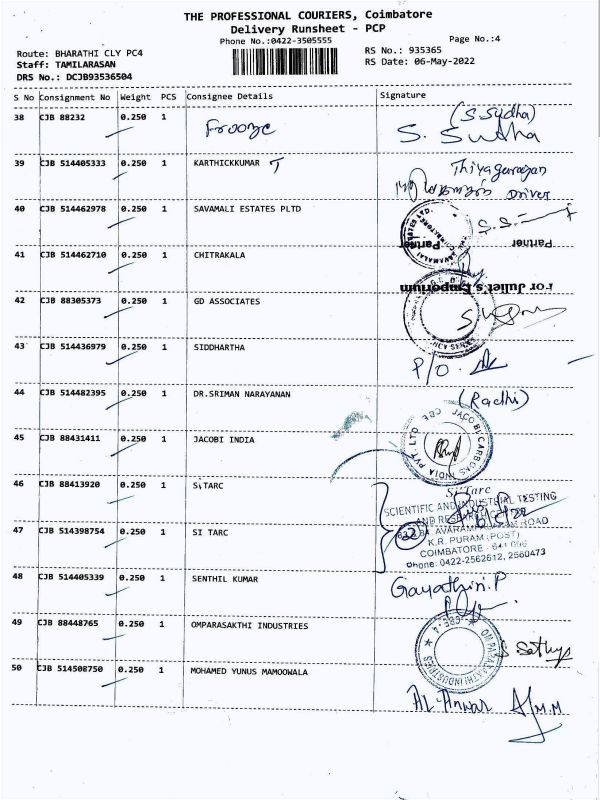 THE PROFESSIONAL COURIERS, Coimbatore
Delivery Runsheet - PCP
Phone No.:0422-3505555
Page No.:4
Route: BHARATHI CLY PC4
RS No.: 935365
Staff: TAMILARASAN
RS Date: 06-May-2022
DRS No.: DCJB93536504
S No Consignment No Weight PCS Consignee Details Signature
38 CJB 88232 0.250 1 Frooze (S.Sudha)
S. Sudha
39 CJB 514405333 0.250 1 KARTHICKKUMAR T Thiyagarajan
DRIVER
40 CJB 514462978 0.250 1 SAVAMALI ESTATES PLTD
Partner
41 CJB 514462710 0.250 1 CHITRAKALA
For Juliet's Emporium
42 CJB 88305373 0.250 1 GD ASSOCIATES
43 CJB 514436979 0.250 1 SIDDHARTHA P/O.
44 CJB 514482395 0.250 1 DR.SRIMAN NARAYANAN (Radhi)
45 CJB 88431411 0.250 1 JACOBI INDIA JACOBI CARBONS INDIA PVT. LTD CBE
46 CJB 88413920 0.250 1 SiTARC SiTarc
SCIENTIFIC AND INDUSTRIAL TESTING
47 CJB 514398754 0.250 1 SI TARC
K.R. PURAM (POST)
COIMBATORE - 641 006
Phone: 0422-2562612, 2560473
48 CJB 514405339 0.250 1 SENTHIL KUMAR Gayathiri.P
49 CJB 88448765 0.250 1 OMPARASAKTHI INDUSTRIES OM PARASAKTHI INDUSTRIES ★ CBE-4 ★
S Sathya
50 CJB 514508750 0.250 1 MOHAMED YUNUS MAMOOWALA
AL-Anwar